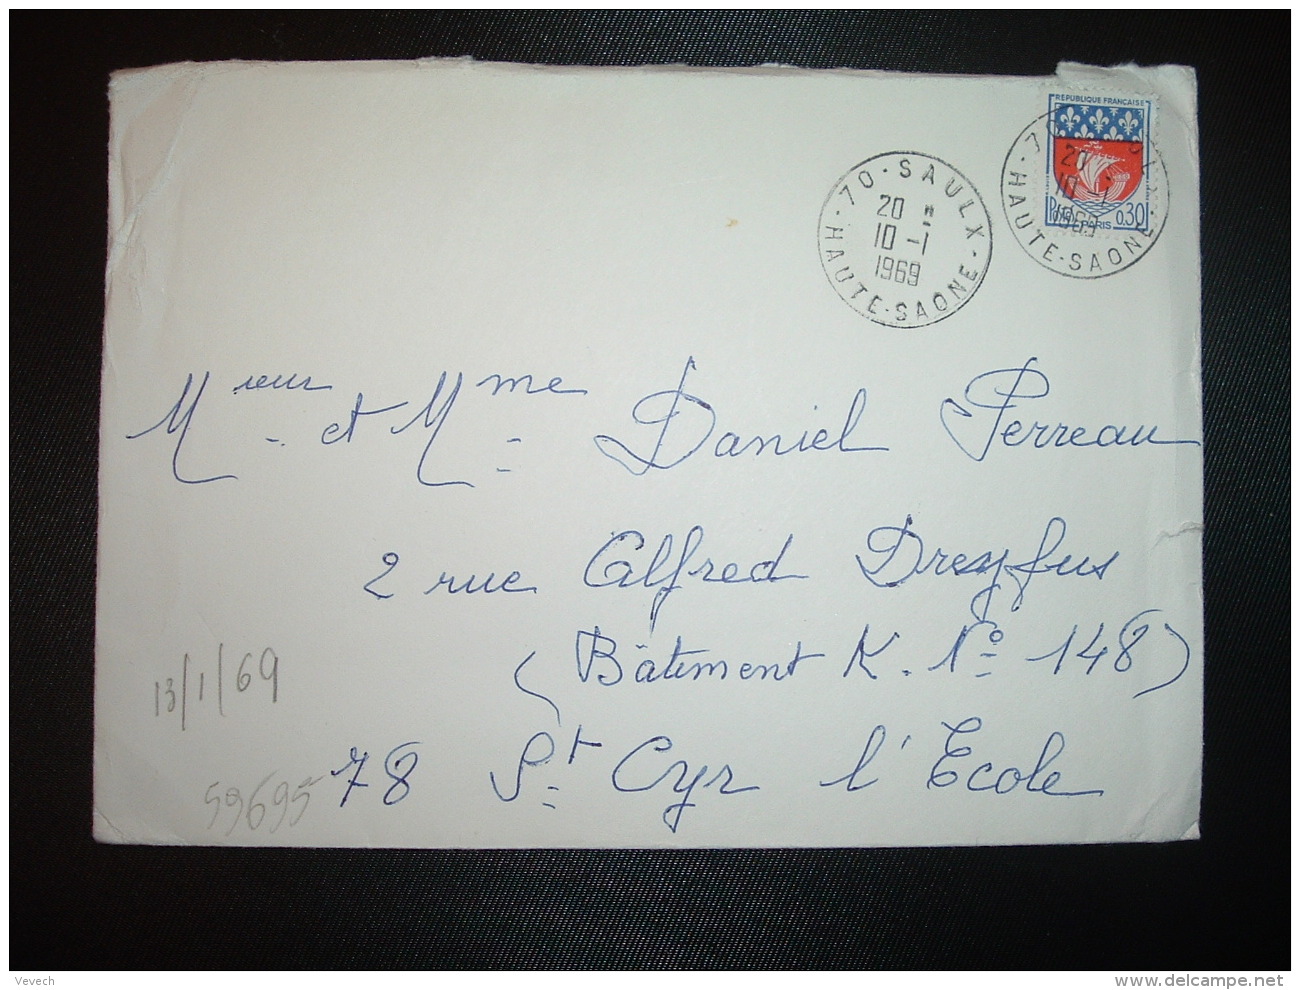 REPUBLIQUE FRANCAISE
0,30
PARIS
70 · SAULX
20 H
10 -1
1969
HAUTE-SAONE
20
10 -1
1969
HAUTE-SAONE
Mieur et Mme Daniel Perreau
2 rue Alfred Dreyfus
(Bâtiment K. No 148)
13/1/69
78 St Cyr l'Ecole
59695
Vevech
www.delcampe.net